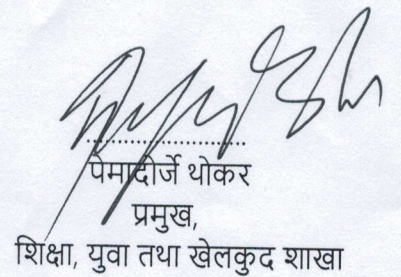 ........................
पेमादोर्जे थोकर
प्रमुख,
शिक्षा, युवा तथा खेलकुद शाखा